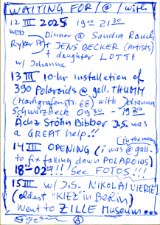 WAITING FOR / @ / with
12 III 2025 19 – 21 30
WED Dinner @ Sandra Rauch
+ JENS BECKER (Artist)
daughter LOTTI
w/ Johanna
13 III 10-hr installation of
390 Polaroids @ gall. THUMM
(Markgrafenstr. 68) with Johanna
09 30 – 19 30
J.S. was
a GREAT help!!
14 III OPENING (I was @ gall.
to fix falling down POLAROIDS)
18 – !!! See FOTOS!!!
15 III w/ J.S. NIKOLAIVIERTEL
(oldest "KIEZ" in Berlin)
Went to ZILLE Museum